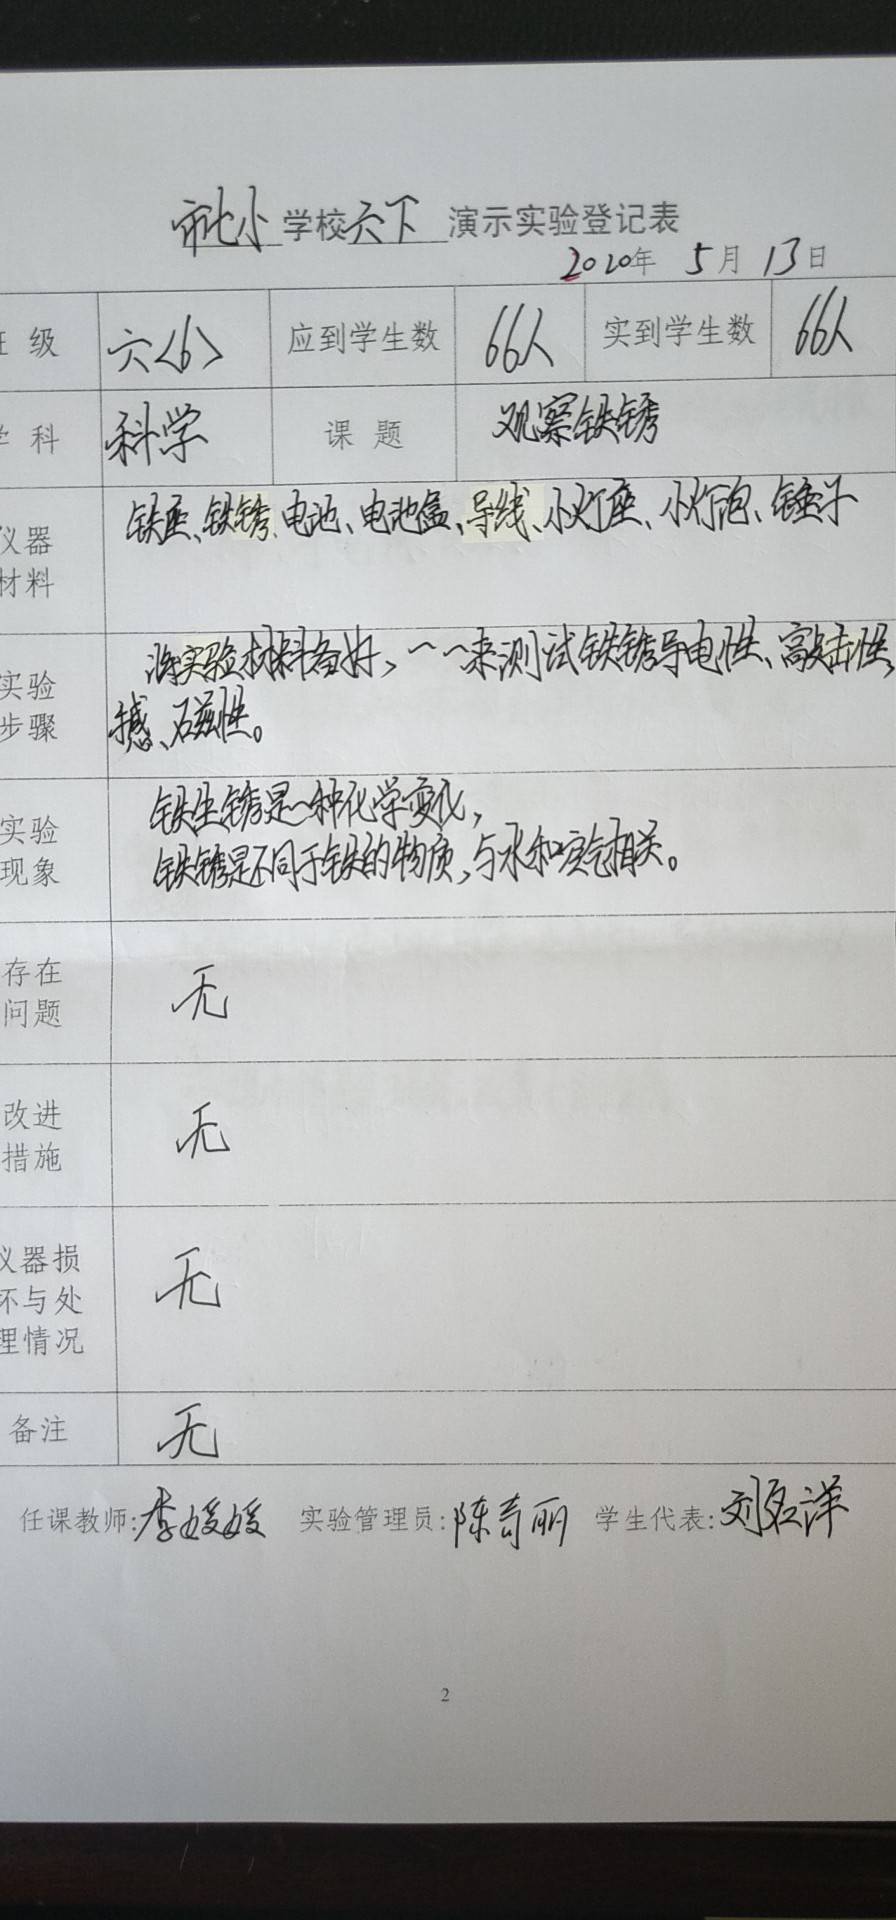 市北小学校六下演示实验登记表
2020年 5月 13日
级 六<6> 应到学生数 66人 实到学生数 66人
科 科学 课题 观察铁锈
仪器 铁座、铁锈、电池、电池盒、导线、小灯座、小灯泡、锤子
材料
实验 将实验材料备好,一一来测试铁锈导电性、敲击性,
步骤 手感、磁性。
实验 铁生锈是一种化学变化,
现象 铁锈是不同于铁的物质,与水和空气相关。
存在
问题 无
改进
措施 无
仪器损
坏与处 无
理情况
备注 无
任课教师:李媛媛 实验管理员:陈奇丽 学生代表:刘名洋
2